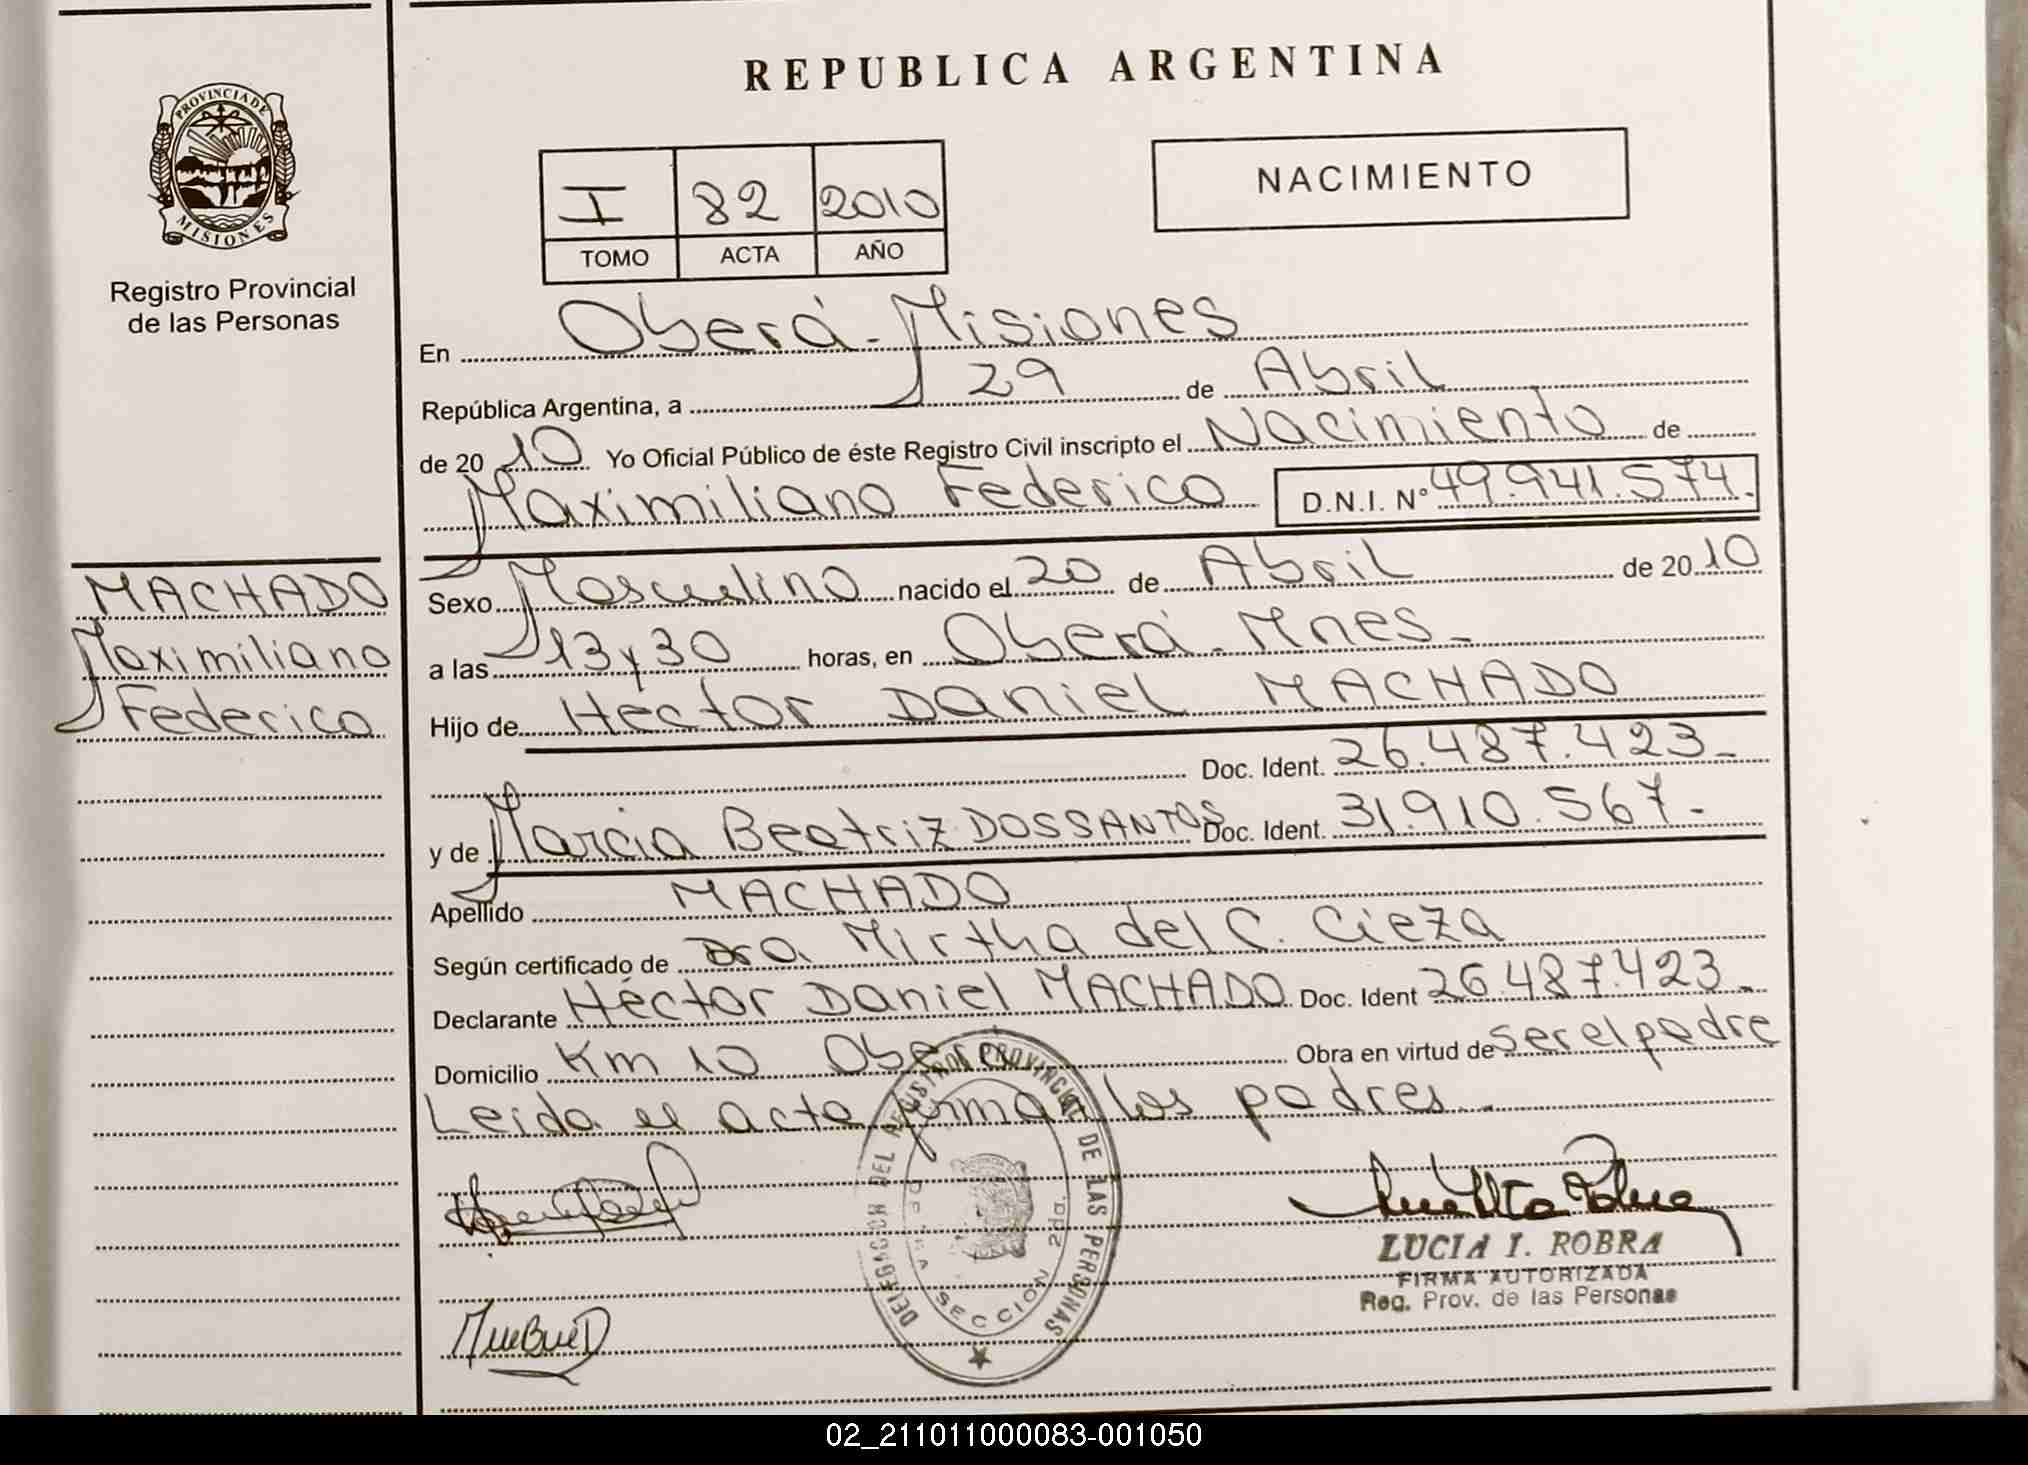 REPUBLICA ARGENTINA
PROVINCIA DE
MISIONES
Registro Provincial
de las Personas
I 82 2010
TOMO ACTA AÑO
NACIMIENTO
En Oberá - Misiones
República Argentina, a 29 de Abril
de 20 10 Yo Oficial Público de éste Registro Civil inscripto el Nacimiento de
Maximiliano Federico D.N.I. N° 49.941.574.
MACHADO
Maximiliano
Federico
Sexo Masculino nacido el 20 de Abril de 20 10
a las 13 y 30 horas, en Oberá - Mnes -
Hijo de Héctor Daniel MACHADO
Doc. Ident. 26.487.423 -
y de Marcia Beatriz DOSSANTOS Doc. Ident. 31.910.567 -
Apellido MACHADO
Según certificado de Dra Mirtha del C. Cieza
Declarante Héctor Daniel MACHADO Doc. Ident 26.487.423 -
Domicilio Km 10 Oberá Obra en virtud de ser el padre
Leida el acta firman los padres -
DELEGACION DEL REGISTRO PROVINCIAL DE LAS PERSONAS
SECCION 2da.
LUCIA I. ROBRA
FIRMA AUTORIZADA
Reg. Prov. de las Personas
02_211011000083-001050